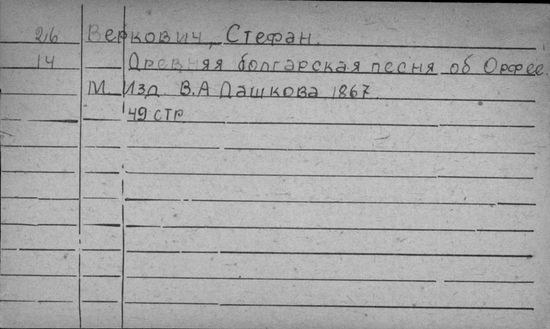 26 Веркович, Стефан.
14 Древняя болгарская песня об Орфее.
М. Изд. В.А Дашкова 1867.
49 стр